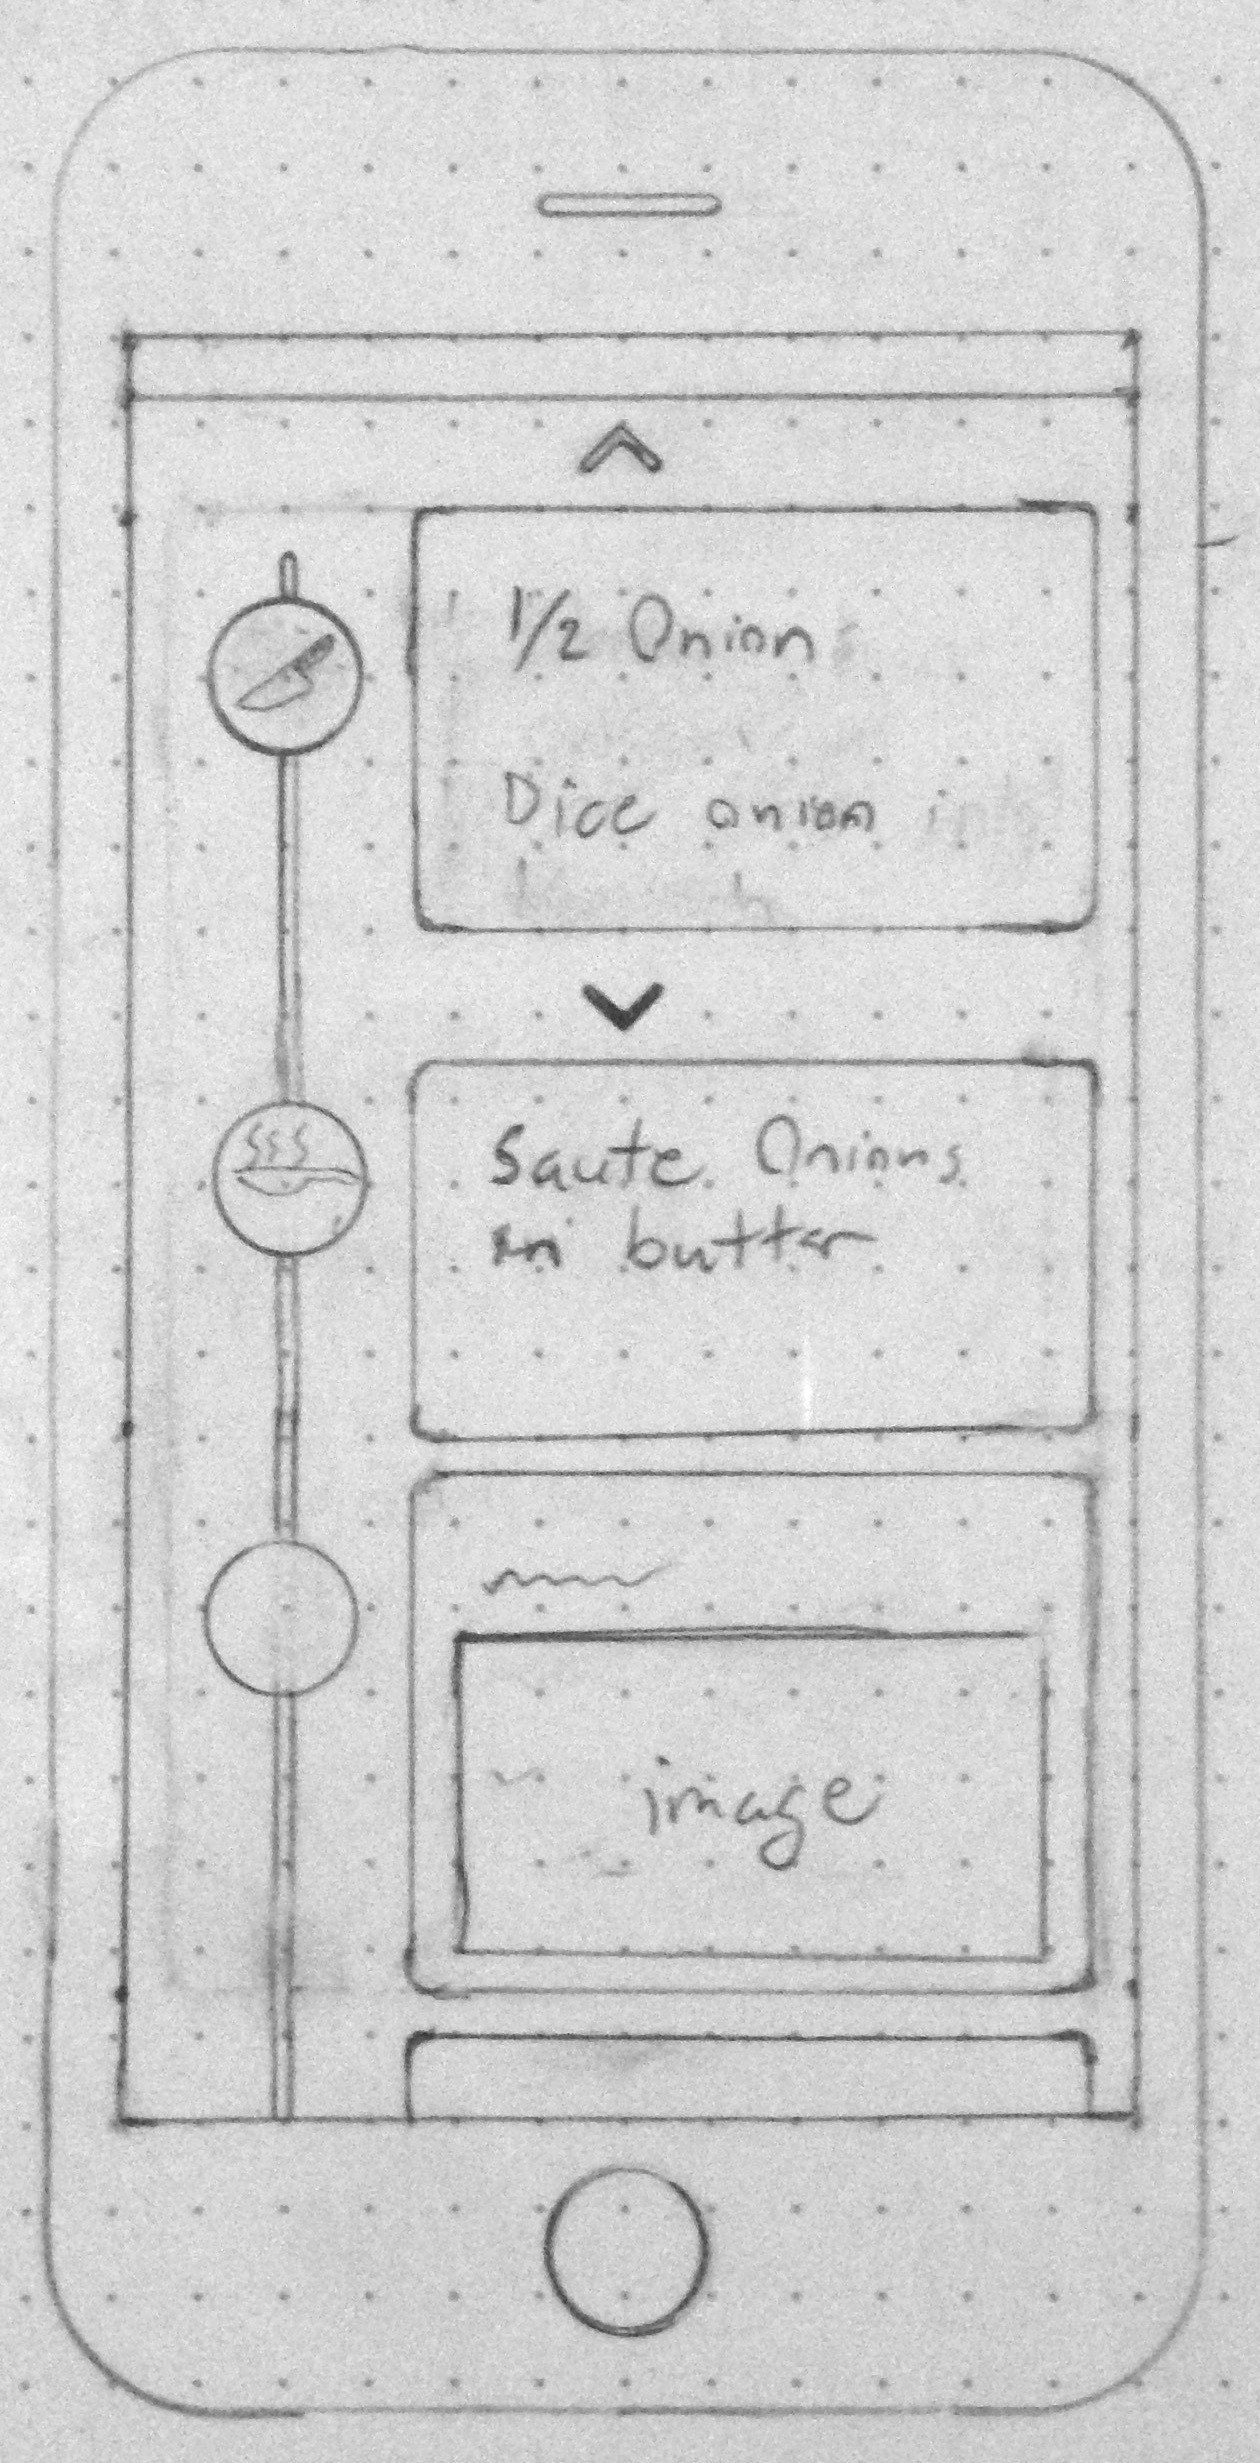 1/2 Onion
Dice onion
Saute Onions
in butter
image